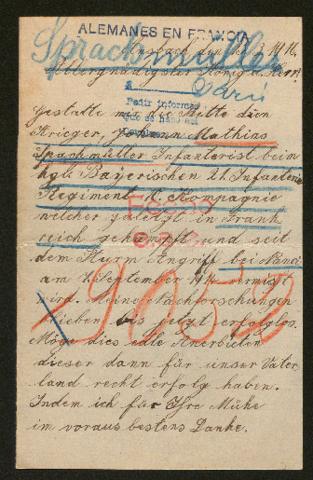 ALEMANES EN FRANCIA
Sprachmüller
den 1916
Allergnädigster König u. Herr!
Paris
Pedir informes
Gestatte mir die Bitte den
que se hará así
Krieger, Johann Mathias
Sparhmüller Infanterist beim
kgl. Bayerischen 21. Infanterie
Regiment Kompagnie
welcher zuletzt in Frank
reich gekämpft und seit
dem Sturm Angriff bei Nanci
am 7. September 1914 vermisst
wird. Meine Nachforschungen
blieben bis jetzt erfolglos.
Möge dies edle Anerbieten
dieser dann für unser Vater-
land recht erfolg haben.
Indem ich für Ihre Mühe
im voraus bestens Danke.